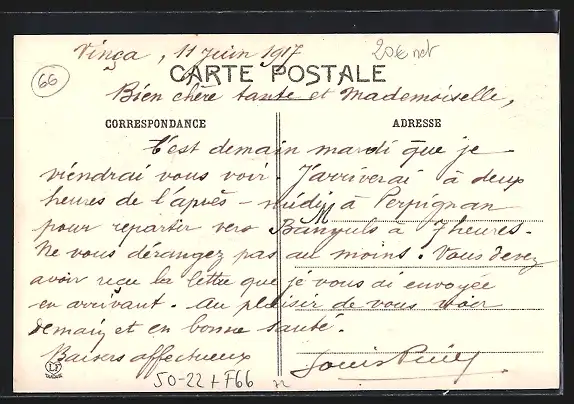 Vinça, 11 Juin 1917
20€ net
66
CARTE POSTALE
Bien chère tante et Mademoiselle,
CORRESPONDANCE
ADRESSE
C'est demain mardi que je
viendrai vous voir. J'arriverai à deux
heures de l'après-midi, à Perpignan
M
pour repartir vers Banyuls à 7 heures.
Ne vous dérangez pas au moins. Vous devez
avoir reçu la lettre que je vous ai envoyée
en arrivant. Au plaisir de vous voir
demain et en bonne santé.
Baisers affectueux
Louis
50-22 + F66